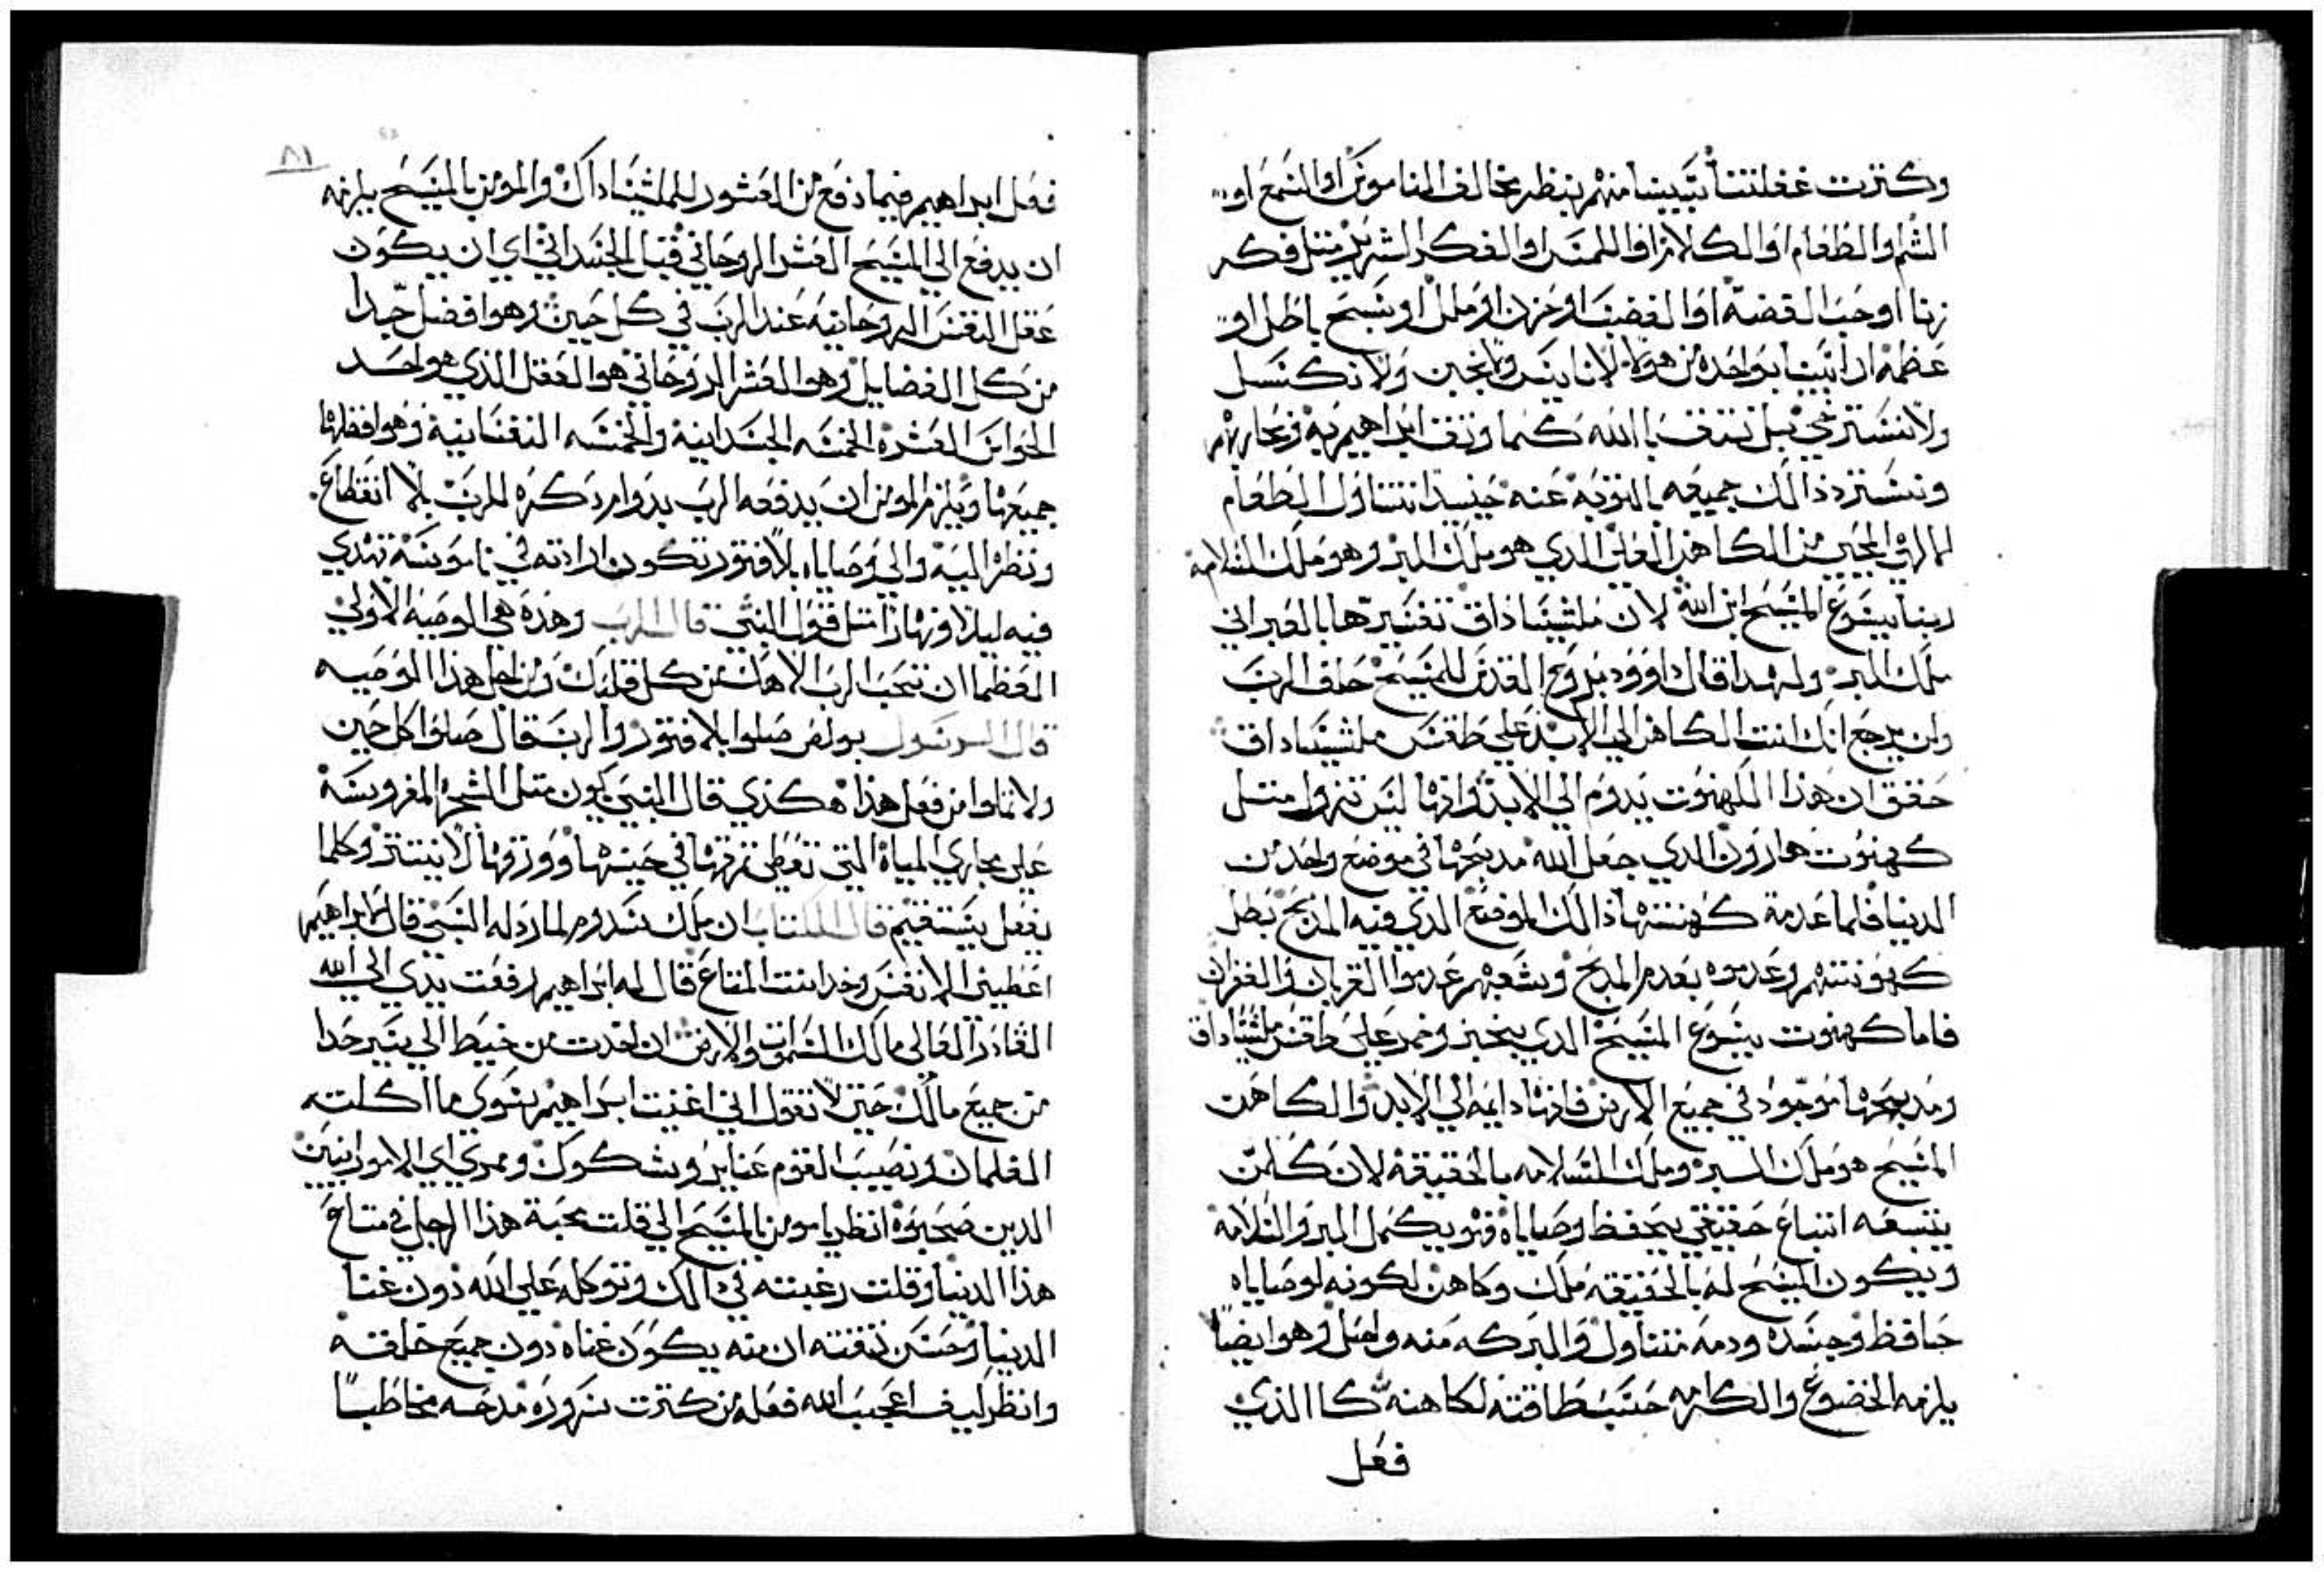 وكترت غفلتنا بتبيننا منهم بنظر مخالف الناموس او السمع او
الشم او الطعام او الكلام او اللمس او الفكر الشرير مثل فكر
زنا او حب الفضة او الغضب او حزن او ملل او تسبح باطل او
عظمة اذا اتينا بواحده من هولا لا نايس ولا نجبن ولا نكسل
ولا نسترخي بل نتق بالله كما وتق ابراهيم به ونحاربهم
ونسترد ذالك جميعه بالتوبة عنه حينيدا نتناول الطعام
الالهي المحيي من الكاهن العلي الدي هو ملك البر وهو ملك السلامة
ربنا يسوع المسيح ابن الله لان ملشيساداق تفسيرها بالعبراني
ملك البر ولهدا قال داوود بروح القدس للمسيح حلف الرب
ولن يرجع انك انت الكاهن الي الابد علي طقس ملشيساداق
حقق ان هذا الكهنوت يدوم الي الابد وانها ليس تزول متل
كهنوت هارون الدي جعل الله مدبحها في موضع واحد من
الدنيا فلما عدمة كهنتها ذالك الموضع الدي فيه المدبح بطل
كهونتهم وعدموه بعدم المدبح وشعبهم عدموا القربان والغفران
فاما كهنوت يسوع المسيح الدي بخبز وخمر علي طقس ملشيساداق
ومدبحها موجود في جميع الارض فانها دايمه الي الابد والكاهن
المسيح هو ملك البر وملك السلامه بالحقيقة لان كلمن
يتبعه اتباع حقيقي بحفظ وصاياه فهو يكمل البر والسلامة
ويكون المسيح له بالحقيقه ملك وكاهن لكونه لوصاياه
حافظ وجسده ودمه متناول والبركه منه واصل وهو ايضا
يلزمه الخضوع والكرامه حسب طاقته لكاهنه كا الذي
فعل
٨١
فعل ابراهيم فيما دفع من العشور للملشيساداك والمومن بالمسيح يلزمه
ان يدفع الي المسيح العشر الروحاني قبل الجسداني اي ان يكون
عقل النفس الروحانيه عند الرب في كل حين وهو افضل جدا
من كل الفضايل وهو العشر الروحاني هو العقل الذي هو احد
الحواس العشره الخمسه الجسدانية والخمسه النفسانية وهو افضلها
جميعها ويلزم المومن ان يدفعه الرب بدوام دكره للرب بلا انقطاع
ونظره اليه والي وصاياه بلا فتور تكون ارادته في ناموسة تهدي
فيه ليلا ونهارا متل قول النبي قال الرب وهذه هي الوصيه الاولي
العظما ان تحب الرب الاهك من كل قلبك ومن اجل هذا الوصيه
قال الرسول بولص صلوا بلا فتور والرب قال صلوا كل حين
ولا تملوا من فعل هذا هكذي قال النبي يكون متل الشجره المغروسة
علي مجاري المياه التي تعطي ثمرتها في حينها وورقها لا ينتتر وكلما
يفعل يستقيم قال الكتاب ان ملك سدوم المارد له النبي قال لابراهيم
اعطيني الانفس وخد انت المتاع قال له ابراهيم ارفعت يدي الي الله
القادر العالي مالك السموات والارض ان اخدت من خيط الي سير حدا
من جميع مالك حتى لا تقول اني اغنيت ابراهيم سوي ما اكلته
الغلمان ونصيب القوم عناير وشكوك وممري اي الامورانيين
الدين صحبوه انظر يا مومن بالمسيح الي قلت محبة هذا الرجل في متاع
هذا الدنيا وقلت رغبته في ذالك وتوكله علي الله دون غنا
الدنيا وحسن تقته ان منه يكون غناه دون جميع خلقه
وانظر كيف اعجب الله فعله من كترت سروره مدحه مخاطبا